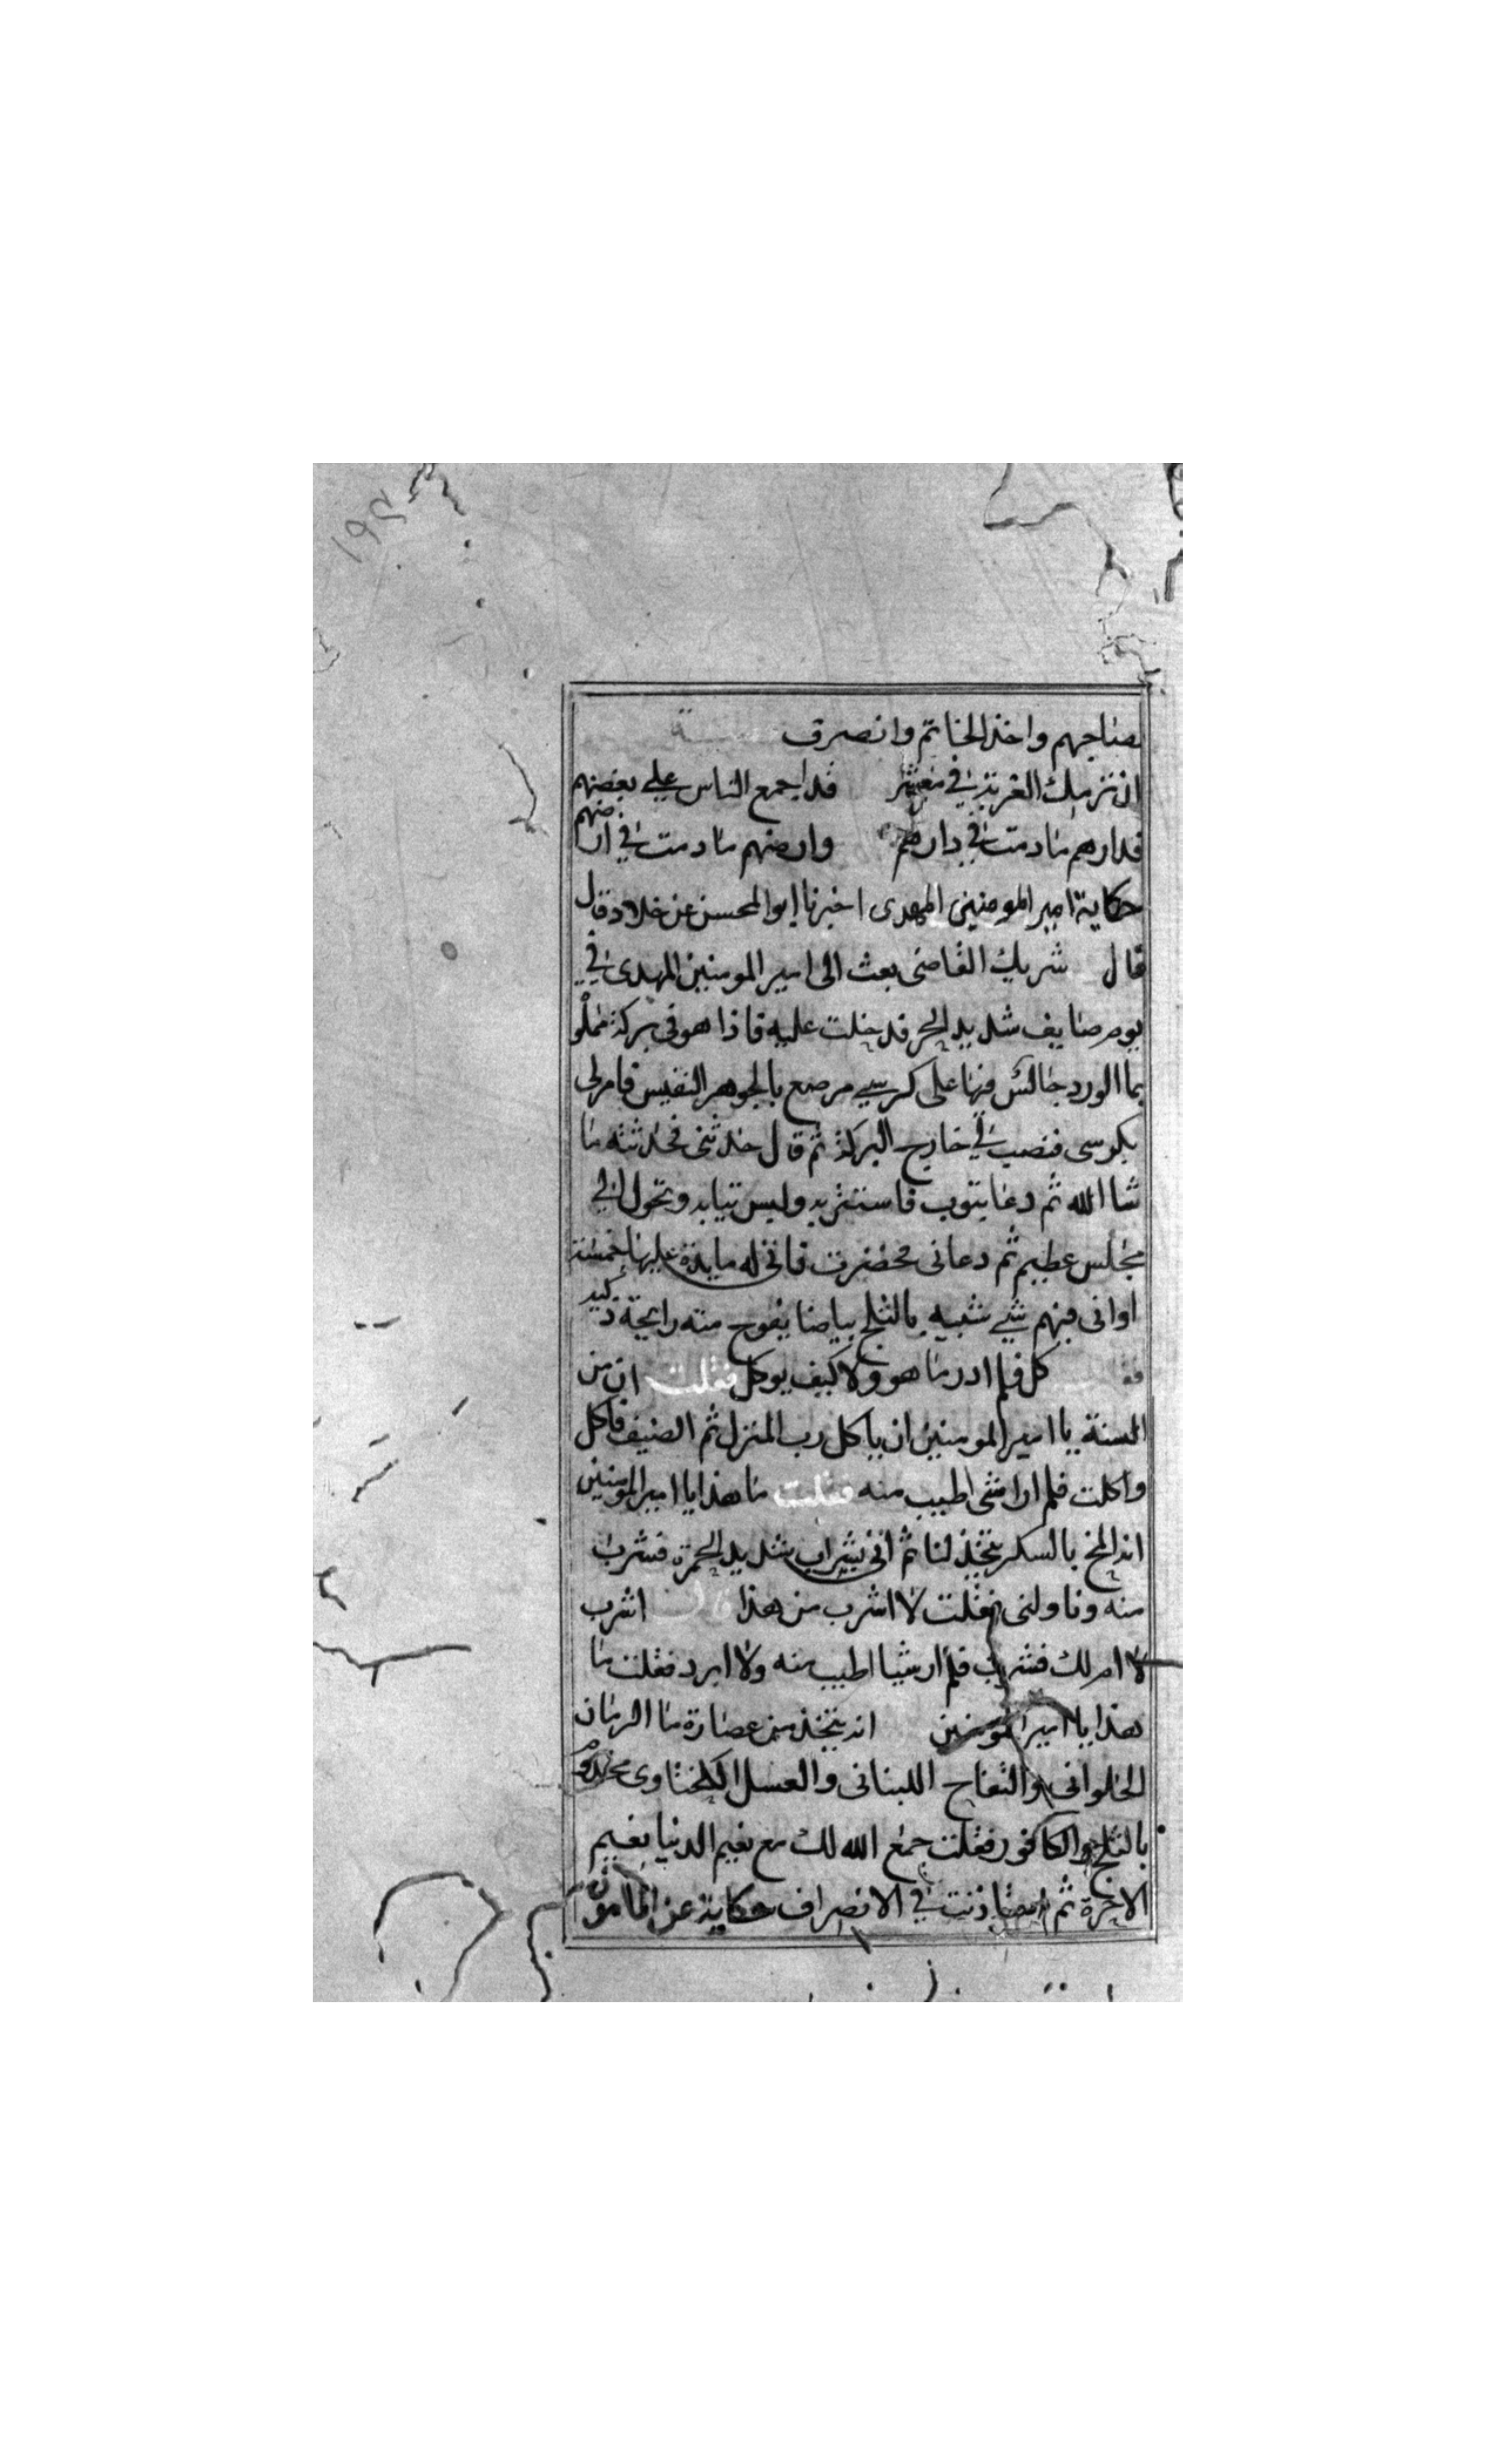 بصناجهم واخذ الخاتم وانصرف
ان ترميك الغربة في معشر قد اجمع الناس على بغضهم
فدارهم مادمت في دارهم وارضهم مادمت في ارضهم
حكاية امير المومنين المهدى اخبرنا ابوالمحسن عن خلاد قال
قال شريك القاضى بعث الى امير المومنين المهدى في
يوم صايف شديد الحر فدخلت عليه فاذا هو في بركة مملو
بما الورد جالس فيها على كرسي مرصع بالجوهر النفيس فامرلى
بكرسى فنصب لي خارج البركة ثم قال حدثنى فحدثته ما
شا الله ثم دعا بثوب فاستتر به ولبس ثيابه وتحول الي
مجلس عظيم ثم دعانى فحضرت فاتى له مايدة عليها خمسة
اوانى فيهم شي شبيه بالثلج بياضا يفوح منه رايحة ذكيه
كل فلم ادر ما هو ولا كيف يوكل فقلت ان من
السنة يا امير المومنين ان ياكل رب المنزل ثم الضيف فاكل
واكلت فلم ار اشى اطيب منه فقلت ما هذا يا امير المومنين
انه المخ بالسكر يتخذ لنا ثم اتى بشراب شديد الحمرة فشرب
منه وناولنى فقلت لا اشرب من هذا قال اشرب
لا ام لك فشربت فلم ار شيا اطيب منه ولا ابرد فقلت ما
هذا يا امير المومنين انه يتخذ من عصارة ما الرمان
الحلوانى والتفاح اللبنانى والعسل
بالثلج والكافور فقلت جمع الله لك مع نعيم الدنيا نعيم
الاخرة ثم استاذنت في الانصراف حكاية عن المامون